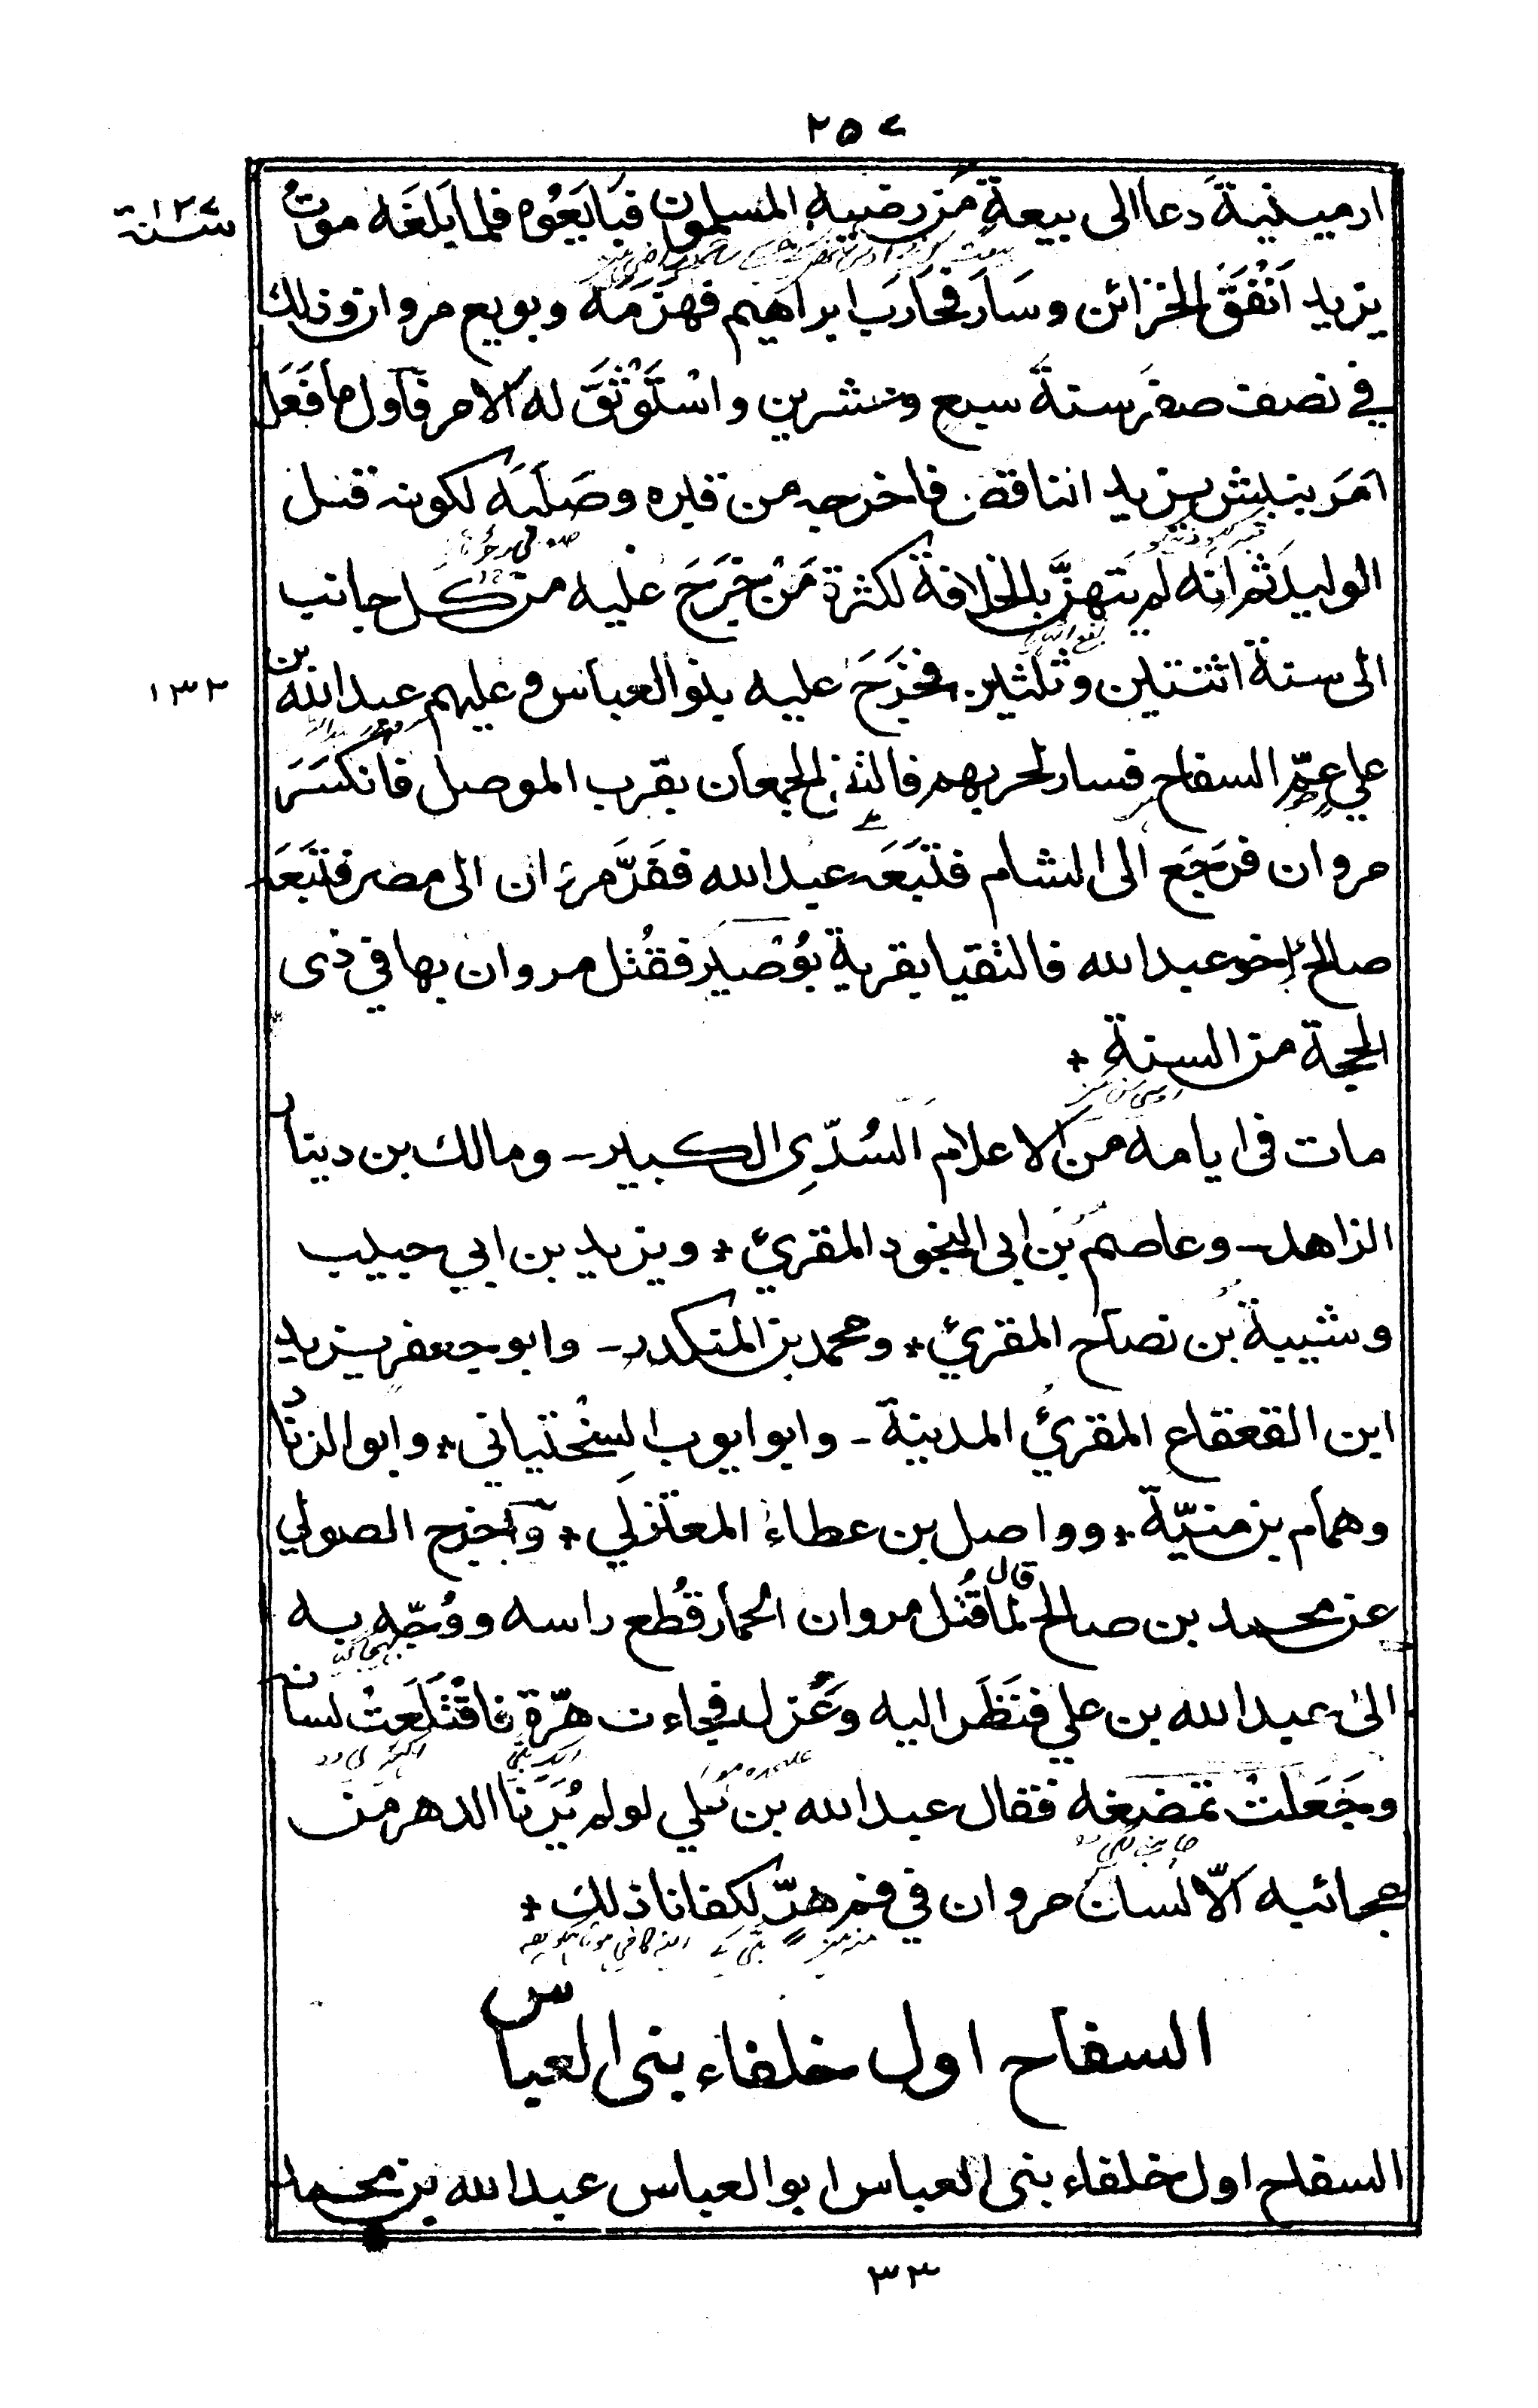 ٢٥٧
ارمينية دعا الى بيعة من رضيه المسلمون فبَايَعُوه فلما بَلَغَه موتُ
سنة ١٢٧
يزيد اَنْفَقَ الخزائن وسَارَ فحَارَبَ ابراهيم فهزَمَه وبويع مروان وذلك
في نصف صفر سنة سبع وعشرين واسْتَوْثَقَ له الامر فاول ما فَعَل
اَمَرَ بنبش يزيد الناقص فاخرجه من قبره وصَلَبَه لكونه قتل
الوليد ثم انه لم يَتَهَنَّ بالخلافة لكثرة مَنْ خَرَجَ عليه من كل جانب
الى سنة اثنتين وثلثين فخَرَجَ عليه بنو العباس وعليهم عبد الله بن
١٣٢
علي عمّ السفاح فسار لحربهم فالتقى الجمعان بقرب الموصل فانكسَرَ
مروان فرَجَع الى الشام فتَبَعَه عبد الله ففَرَّ مروان الى مصر فتَبَعَه
صالح اخو عبد الله فالتقيا بقرية بُوْصِير فقُتل مروان بها في ذى
الحجة من السنة *
مات فى ايامه من الاعلام السُدّي الكبير - ومالك بن دينار
الزاهد - وعاصم بن ابى النجود المقرئ * ويزيد بن ابي حبيب
وشيبة بن نصاح المقرئ * ومحمد بن المنكدر - وابو جعفر يزيد
ابن القعقاع المقرئ المدينة - وابو ايوب السِخْتياني * وابو الزناد
وهمام بن منبّه * وواصل بن عطاء المعتزلي * وَاَخرج الصولي
عن محمد بن صالح قال لما قُتل مروان الحمار قُطع راسه ووُجّه به
الى عبد الله بن علي فنَظَر اليه وعُزل فجاءت هرّة فاقْتَلَعَتْ لسانه
وجَعَلَتْ تمضغه فقال عبد الله بن علي لو لم يُرِنا الدهر من
عجائبه الّا لسان مروان في فم هرّ لكفانا ذلك *
السفاح اول خلفاء بنى العباس
السفاح اول خلفاء بنى العباس ابو العباس عبد الله بن محمد
٣٣